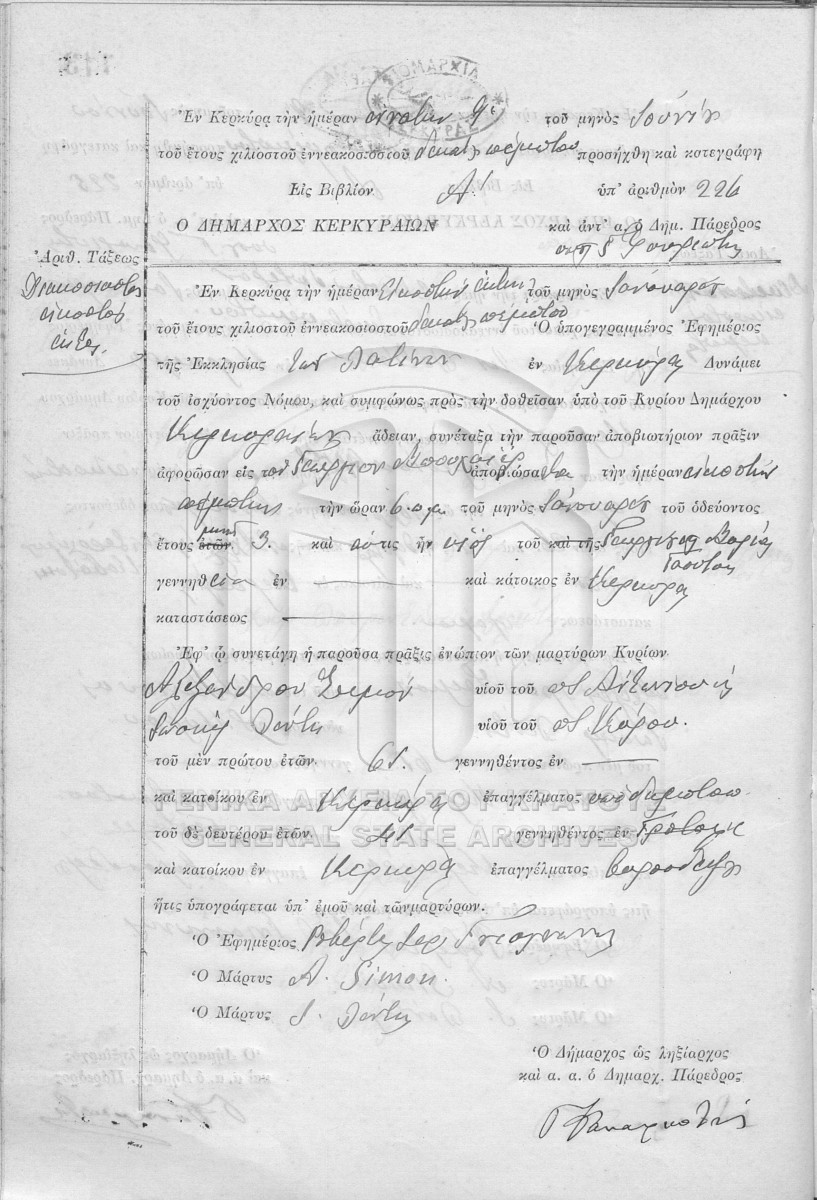 Ἐν Κερκύρᾳ τὴν ἡμέραν ἐνάτην 9 τοῦ μηνὸς Ἰουνίου
τοῦ ἔτους χιλιοστοῦ ἐννεακοσιοστοῦ δεκάτου πέμπτου προσήχθη καὶ κατεγράφη
Εἰς Βιβλίον Α' ὑπ' ἀριθμὸν 226
Ο ΔΗΜΑΡΧΟΣ ΚΕΡΚΥΡΑΙΩΝ καὶ ἀντ' α. ὁ Δημ. Πάρεδρος
Ἀριθ. Τάξεως
Διακοσιοστὸς
εἰκοστὸς
ἕκτος.
Ἐν Κερκύρᾳ τὴν ἡμέραν εἰκοστὴν ἕκτην τοῦ μηνὸς Ἰανουαρίου
τοῦ ἔτους χιλιοστοῦ ἐννεακοσιοστοῦ δεκάτου πέμπτου Ὁ ὑπογεγραμμένος Ἐφημέριος
τῆς Ἐκκλησίας τῶν Λατίνων ἐν Κερκύρᾳ Δυνάμει
τοῦ ἰσχύοντος Νόμου, καὶ συμφώνως πρὸς τὴν δοθεῖσαν ὑπὸ τοῦ Κυρίου Δημάρχου
Κερκυραίων ἄδειαν, συνέταξα τὴν παροῦσαν ἀποβιωτήριον πρᾶξιν
ἀφορῶσαν εἰς τὸν Γεώργιον ἀποβιώσαντα τὴν ἡμέραν εἰκοστὴν
πέμπτην τὴν ὥραν 6 π.μ. τοῦ μηνὸς Ἰανουαρίου τοῦ ὁδεύοντος
ἔτους ἐτῶν μηνῶν 3. καὶ ὅστις ἦν υἱὸς τοῦ καὶ τῆς Γεωργίου
γεννηθεὶς ἐν καὶ κάτοικος ἐν Κερκύρᾳ
καταστάσεως
Ἐφ' ᾧ συνετάγη ἡ παροῦσα πρᾶξις ἐνώπιον τῶν μαρτύρων Κυρίων
Ἀλεξάνδρου Σιμὸν υἱοῦ τοῦ ποτ Ἀντωνίου
Δόντη υἱοῦ τοῦ ποτ Κάρου.
τοῦ μὲν πρώτου ἐτῶν 61. γεννηθέντος ἐν
καὶ κατοίκου ἐν Κερκύρᾳ ἐπαγγέλματος
τοῦ δὲ δευτέρου ἐτῶν 41 γεννηθέντος ἐν
καὶ κατοίκου ἐν Κερκύρᾳ ἐπαγγέλματος
ἥτις ὑπογράφεται ὑπ' ἐμοῦ καὶ τῶν μαρτύρων.
Ὁ Ἐφημέριος Ῥοβέρτος
Ὁ Μάρτυς A. Simon.
Ὁ Μάρτυς Δόντη
Ὁ Δήμαρχος ὡς ληξίαρχος
καὶ α. α. ὁ Δημαρχ. Πάρεδρος
ΓΕΝΙΚΑ ΑΡΧΕΙΑ ΤΟΥ ΚΡΑΤΟΥΣ
GENERAL STATE ARCHIVES